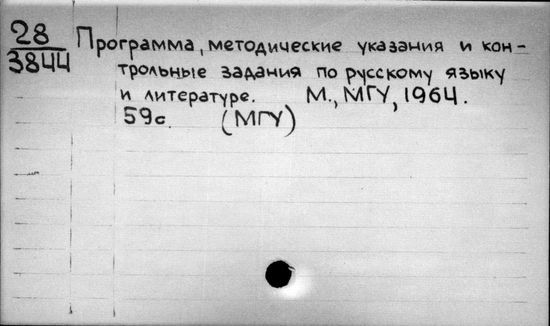 28
3844
Программа, методические указания и кон-
трольные задания по русскому языку
и литературе. М., МГУ, 1964.
59с. (МГУ)